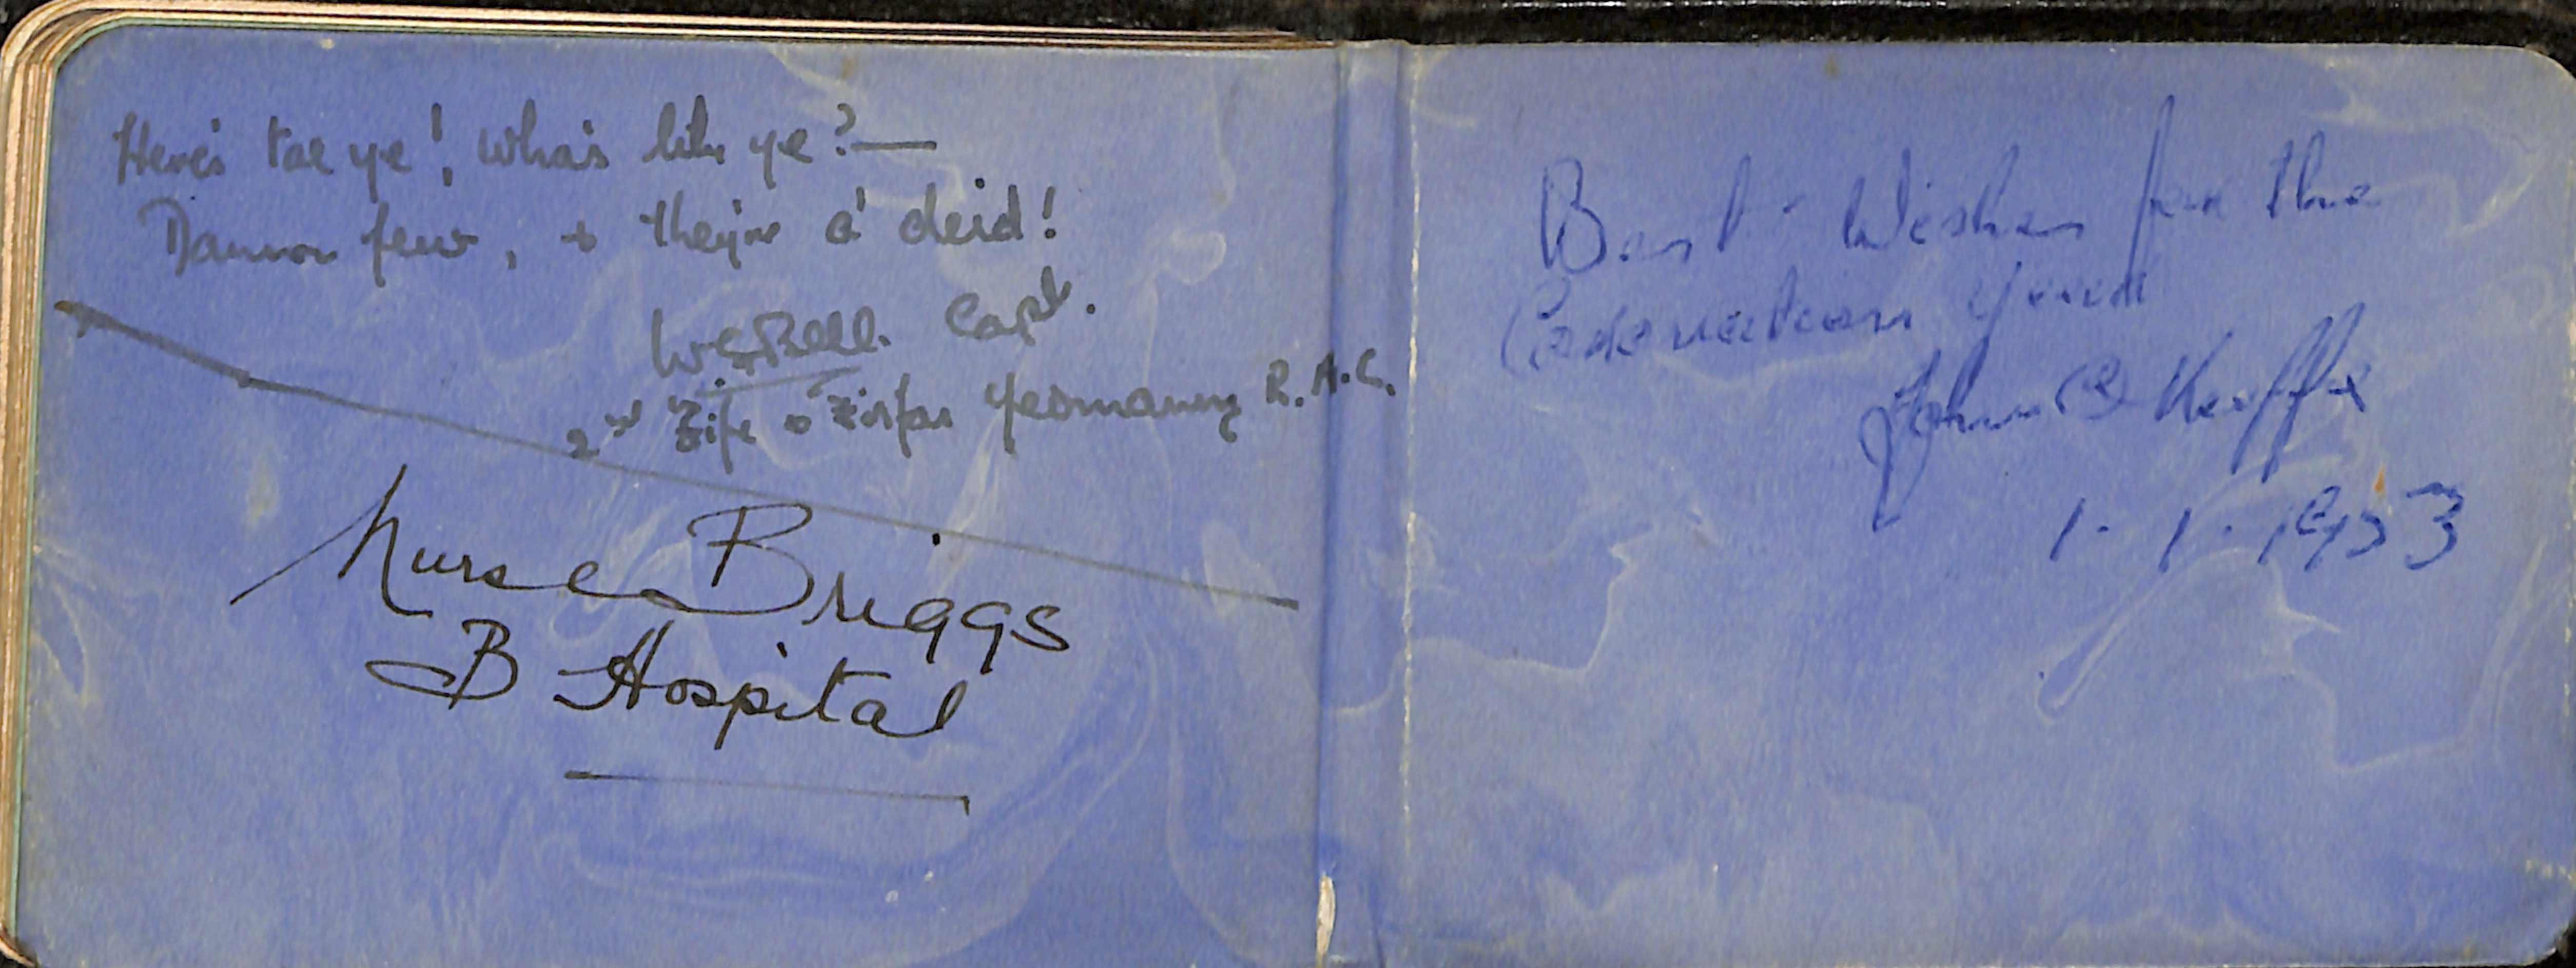 Here's tae ye! Wha's like ye? —
Damn few, + they're a' deid!
W.G. Bell. Capt.
2nd Fife & Forfar Yeomanry R.A.C.
Nurse Briggs
B Hospital
Best Wishes for the
Coronation Year
John B Keeffe
1.1.1953